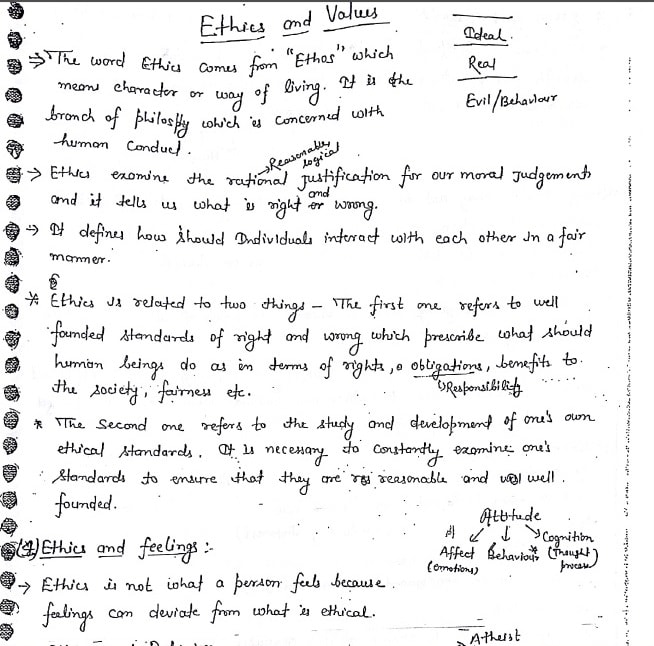 Ethics and Values
Ideal
Real
Evil/Behaviour
⇒ The word Ethics comes from "Ethos" which
means character or way of living. It is the
branch of philospy which is concerned with
human Conduct.
→ Reasonable
logical
→ Ethics examine the rational justification for our moral judgements
and it tells us what is right and or wrong.
→ It defines how should Individuals interact with each other in a fair
manner.
* Ethics is related to two things – The first one refers to well
founded standards of right and wrong which prescribe what should
human beings do as in terms of rights, obligations, benefits to
the society, fairness etc.
↳ Responsibility
* The second one refers to the study and development of one's own
ethical standards. It is necessary to constantly examine one's
standards to ensure that they are reasonable and well
founded.
Attitude
Affect
(emotions)
Behaviour
Cognition
(Thought
process)
(1) Ethics and feelings :-
→ Ethics is not what a person feels because
feelings can deviate from what is ethical.
→ Atheist